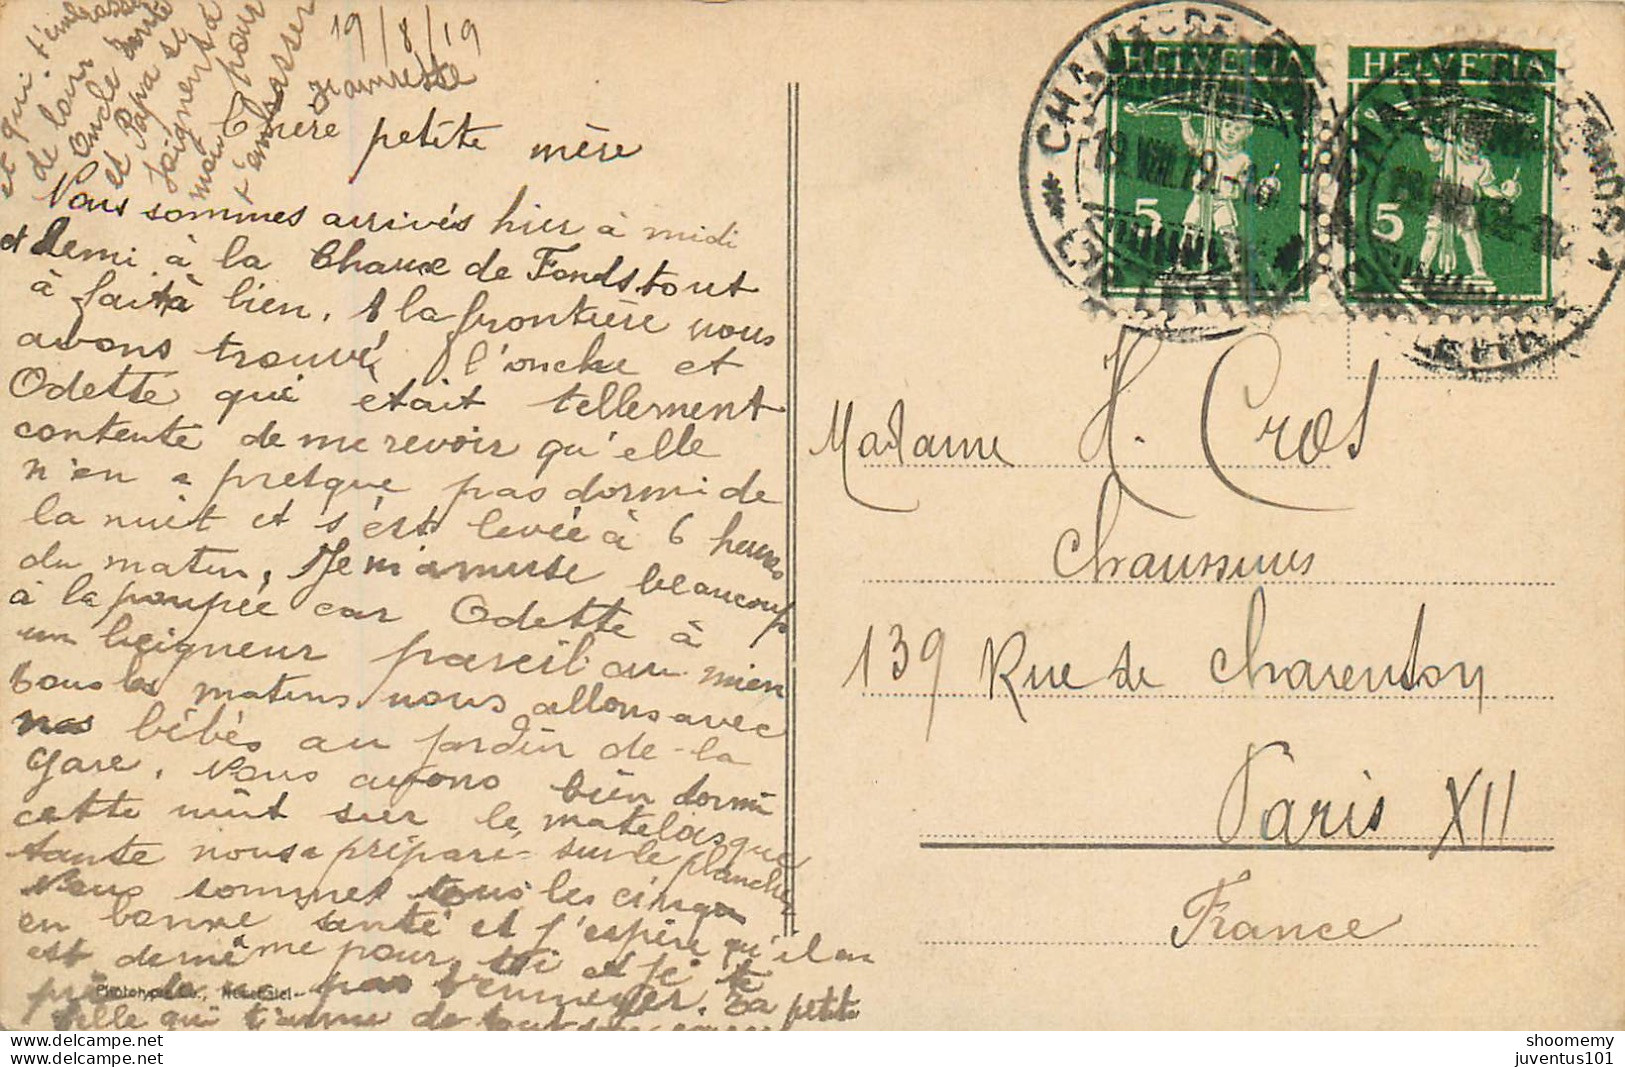 19/8/19
Chère petite mère
Nous sommes arrivés hier à midi
et demi à la Chaux de Fonds tout
à fait à bien. A la frontière nous
avons trouvé l'oncle et
Odette qui était tellement
contente de me revoir qu'elle
n'en a presque pas dormi de
la nuit et s'est levée à 6 heures
du matin, Je m'amuse beaucoup
à la poupée car Odette à
un beigneur pareil au mien
tous les matins nous allons avec
nos bébés au jardin de la
gare. Nous avons bien dormi
cette nuit sur le matelas que
tante nous a préparé sur le plancher
Nous sommes tous les cinq
en bonne santé et j'espère qu'il en
est de même pour toi et je te
prie de ne pas t'ennuyer. Ta petite
fille qui t'aime de tout son cœur
et qui t'embrasse
de loin
Oncle tante
et Papa se
joignent à
moi pour
t'embrasser
Phototypie Co., Neuchâtel
HELVETIA
5
HELVETIA
5
Madame H. Cros
Chaussures
139 Rue de Charenton
Paris XII
France
shoomemy
juventus101